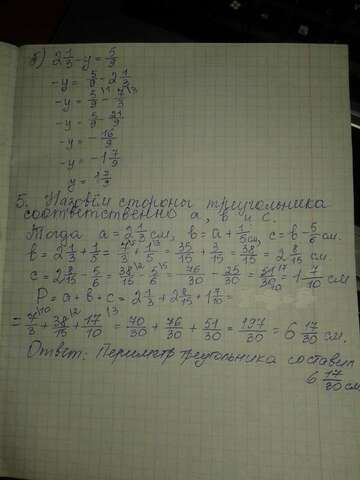 б) 2 1/3 - y = 5/9
-y = 5/9 - 2 1/3
-y = 5/9 - 7/3
-y = 5/9 - 21/9
-y = - 16/9
-y = -1 7/9
y = 1 7/9
5. Назовём стороны треугольника
соответственно а, в и с.
Тогда а = 2 1/3 см, в = а + 1/5 см, с = в - 5/6 см.
в = 2 1/3 + 1/5 = 7/3 + 1/5 = 35/15 + 3/15 = 38/15 = 2 8/15 см
с = 2 8/15 - 5/6 = 38/15 - 5/6 = 76/30 - 25/30 = 51/30 = 1 7/10 см
Р = а + в + с = 2 1/3 + 2 8/15 + 1 7/10 =
= 7/3 + 38/15 + 17/10 = 70/30 + 76/30 + 51/30 = 197/30 = 6 17/30 см.
Ответ: Периметр треугольника составит
6 17/30 см